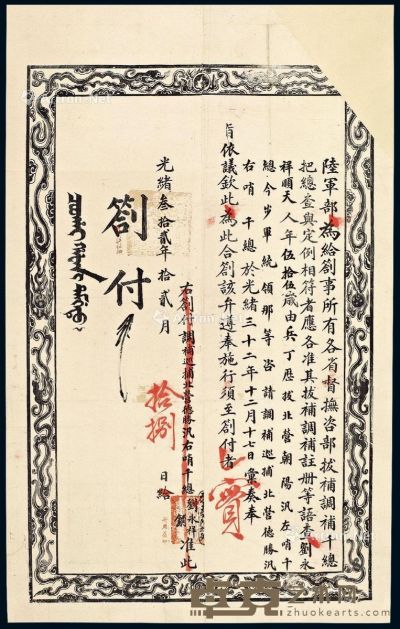 陸軍部為給劄事所有各省督撫咨部拔補調補千總
把總查與定例相符者應各准其拔補調補註冊等語查劉永
祥順天人年伍拾伍歲由兵丁歷拔北營朝陽汛左哨千
總今步軍統領那等咨請調補巡捕北營德勝汛
右哨千總於光緒三十二年十二月十七日彙奏奉
旨依議欽此為此合劄該弁遵奉施行須至劄付者
實
右劄付調補巡捕北營德勝汛右哨千總劉永祥准此
光緒叁拾貳年拾貳月拾捌日給
劄付
zhuokearts.com